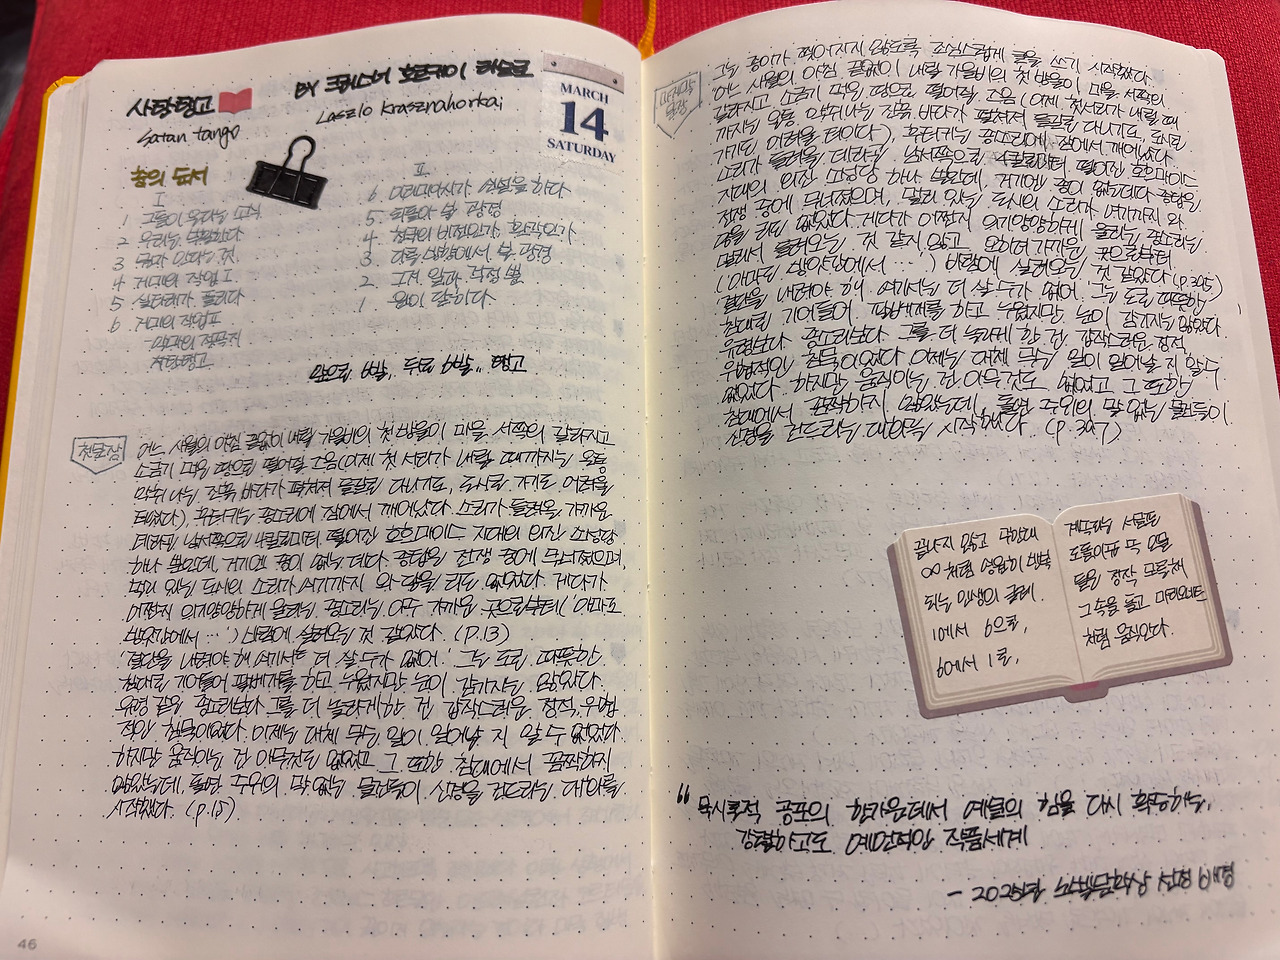 사탄탱고
BY 크러스너호르커이 라슬로
Satan tango
Laszlo Krasznahorkai
MARCH
14
SATURDAY
춤의 순서
I
1 그들이 온다는 소식
2 우리는 부활한다
3 뭔가 안다는 것
4 거미의 작업 I
5 실타래가 풀리다
6 거미의 작업 II
악마의 젖꼭지
사탄탱고
II
6 이리미아시가 연설을 하다
5 뒤에서 본 광경
4 천국의 비전인가, 환각인가
3 다른 쪽에서 본 광경
2 그저 일과 걱정뿐
1 원이 닫히다
앞으로 6발, 뒤로 6발.. 탱고
첫문장
어느 시월의 아침 끝없이 내릴 가을비의 첫 방울이 마을 서쪽의 갈라지고
소금기 먹은 땅으로 떨어질 즈음(이제 첫 서리가 내릴 때까지는 온통
악취 나는 진흙 바다가 펼쳐져 들길로 다니기도, 도시로 가기도 어려울
터였다), 후터키는 종소리에 잠에서 깨어났다. 소리가 들려올 가까운
데라곤 남서쪽으로 4킬로미터 떨어진 호흐마이스 지대의 외진 소성당
하나 뿐인데, 거기엔 종이 없는 데다 종탑은 전쟁 중에 무너졌으며,
멀리 있는 도시의 소리가 여기까지 와 닿을 리도 없었다. 게다가
어쩐지 의기양양하게 울리는 종소리는 아주 가까운 곳으로부터('아마도
방앗간에서…') 바람에 실려오는 것 같았다. (p.13)
'결단을 내려야 해 여기서는 더 살 수가 없어.' 그는 도로 따뜻한
침대로 기어들어 팔베개를 하고 누웠지만 눈이 감기지는 않았다.
유령 같은 종소리보다 그를 더 놀라게 한 건 갑작스러운 정적, 위협
적인 침묵이었다. 이제는 대체 무슨 일이 일어날 지 알 수 없었다.
하지만 움직이는 건 아무것도 없었고 그 또한 침대에서 꼼짝하지
않았는데, 돌연 주위의 말 없는 물건들이 신경을 건드리는 대화를
시작했다. (p.15)
46
마지막
문장
그는 종이가 찢어지지 않도록 조심스럽게 글을 쓰기 시작했다.
어느 시월의 아침 끝없이 내릴 가을비의 첫 방울이 마을 서쪽의
갈라지고 소금기 먹은 땅으로 떨어질 즈음(이제 첫서리가 내릴 때
까지는 온통 악취나는 진흙 바다가 펼쳐져 들길로 다니기도, 도시로
가기도 어려울 터이다), 후터키는 종소리에 잠에서 깨어났다.
소리가 들려올 데라곤 남서쪽으로 4킬로미터 떨어진 호흐마이스
지대의 외진 소성당 하나 뿐인데, 거기엔 종이 없는데다 종탑은
전쟁 중에 무너졌으며, 멀리 있는 도시의 소리가 여기까지 와
닿을 리도 없었다. 게다가 어쩐지 의기양양하게 울리는 종소리는
멀리서 들려오는 것 같지 않고, 오히려 가까운 곳으로부터
('아마도 방앗간에서…') 바람에 실려오는 것 같았다 (p.395)
'결단을 내려야 해. 여기서는 더 살 수가 없어. 그는 도로 따뜻한
침대로 기어들어, 팔베개를 하고 누웠지만, 눈이 감기지는 않았다.
유령보다 종소리보다 그를 더 놀라게 한 건 갑작스러운 정적,
위협적인 침묵이었다. 이제는 대체 무슨 일이 일어날 지 알 수
없었다. 하지만 움직이는 건 아무것도 없었고 그 또한
침대에서 꼼짝하지 않았는데, 돌연 주위의 말 없는 물건들이
신경을 건드리는 대화를 시작했다. (p.397)
끝나지 않고 무한대
∞처럼 영원히 반복
되는 인생의 굴레.
1에서 6으로,
6에서 1로,
계속되는 서글픈
도돌이표 속 인물
들을 정작 모른채
그 속을 돌고 마리오네트
처럼 움직인다.
“묵시록적 공포의 한가운데서 예술의 힘을 다시 확증하는,
강렬하고도 예언적인 작품세계
- 2025년 노벨문학상 선정 배경